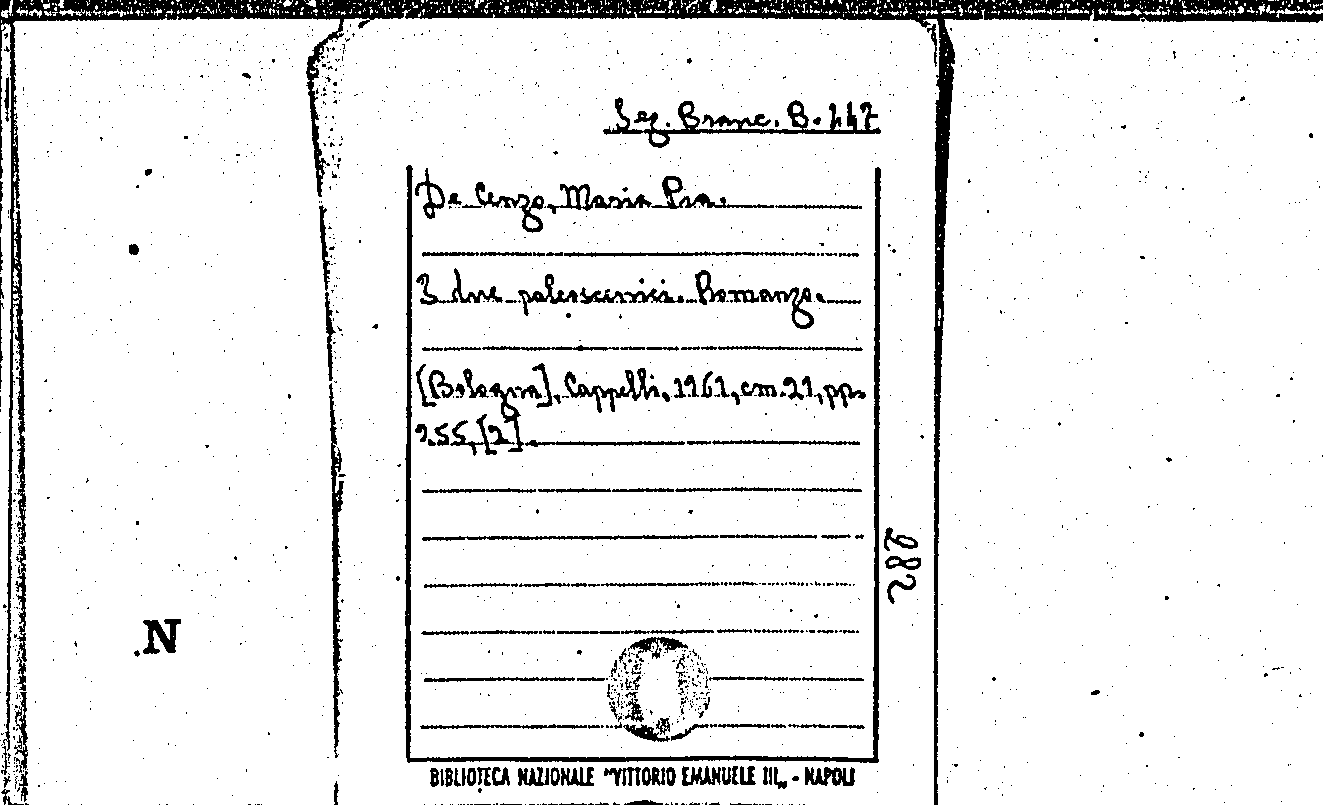 Sez. Branc. B. 447
De Cenzo, Maria Pia.
I due palcoscenici. Romanzo.
[Bologna], Cappelli, 1961, cm. 21, pp.
255, [2].
282
N
BIBLIOTECA NAZIONALE "VITTORIO EMANUELE III„ - NAPOLI